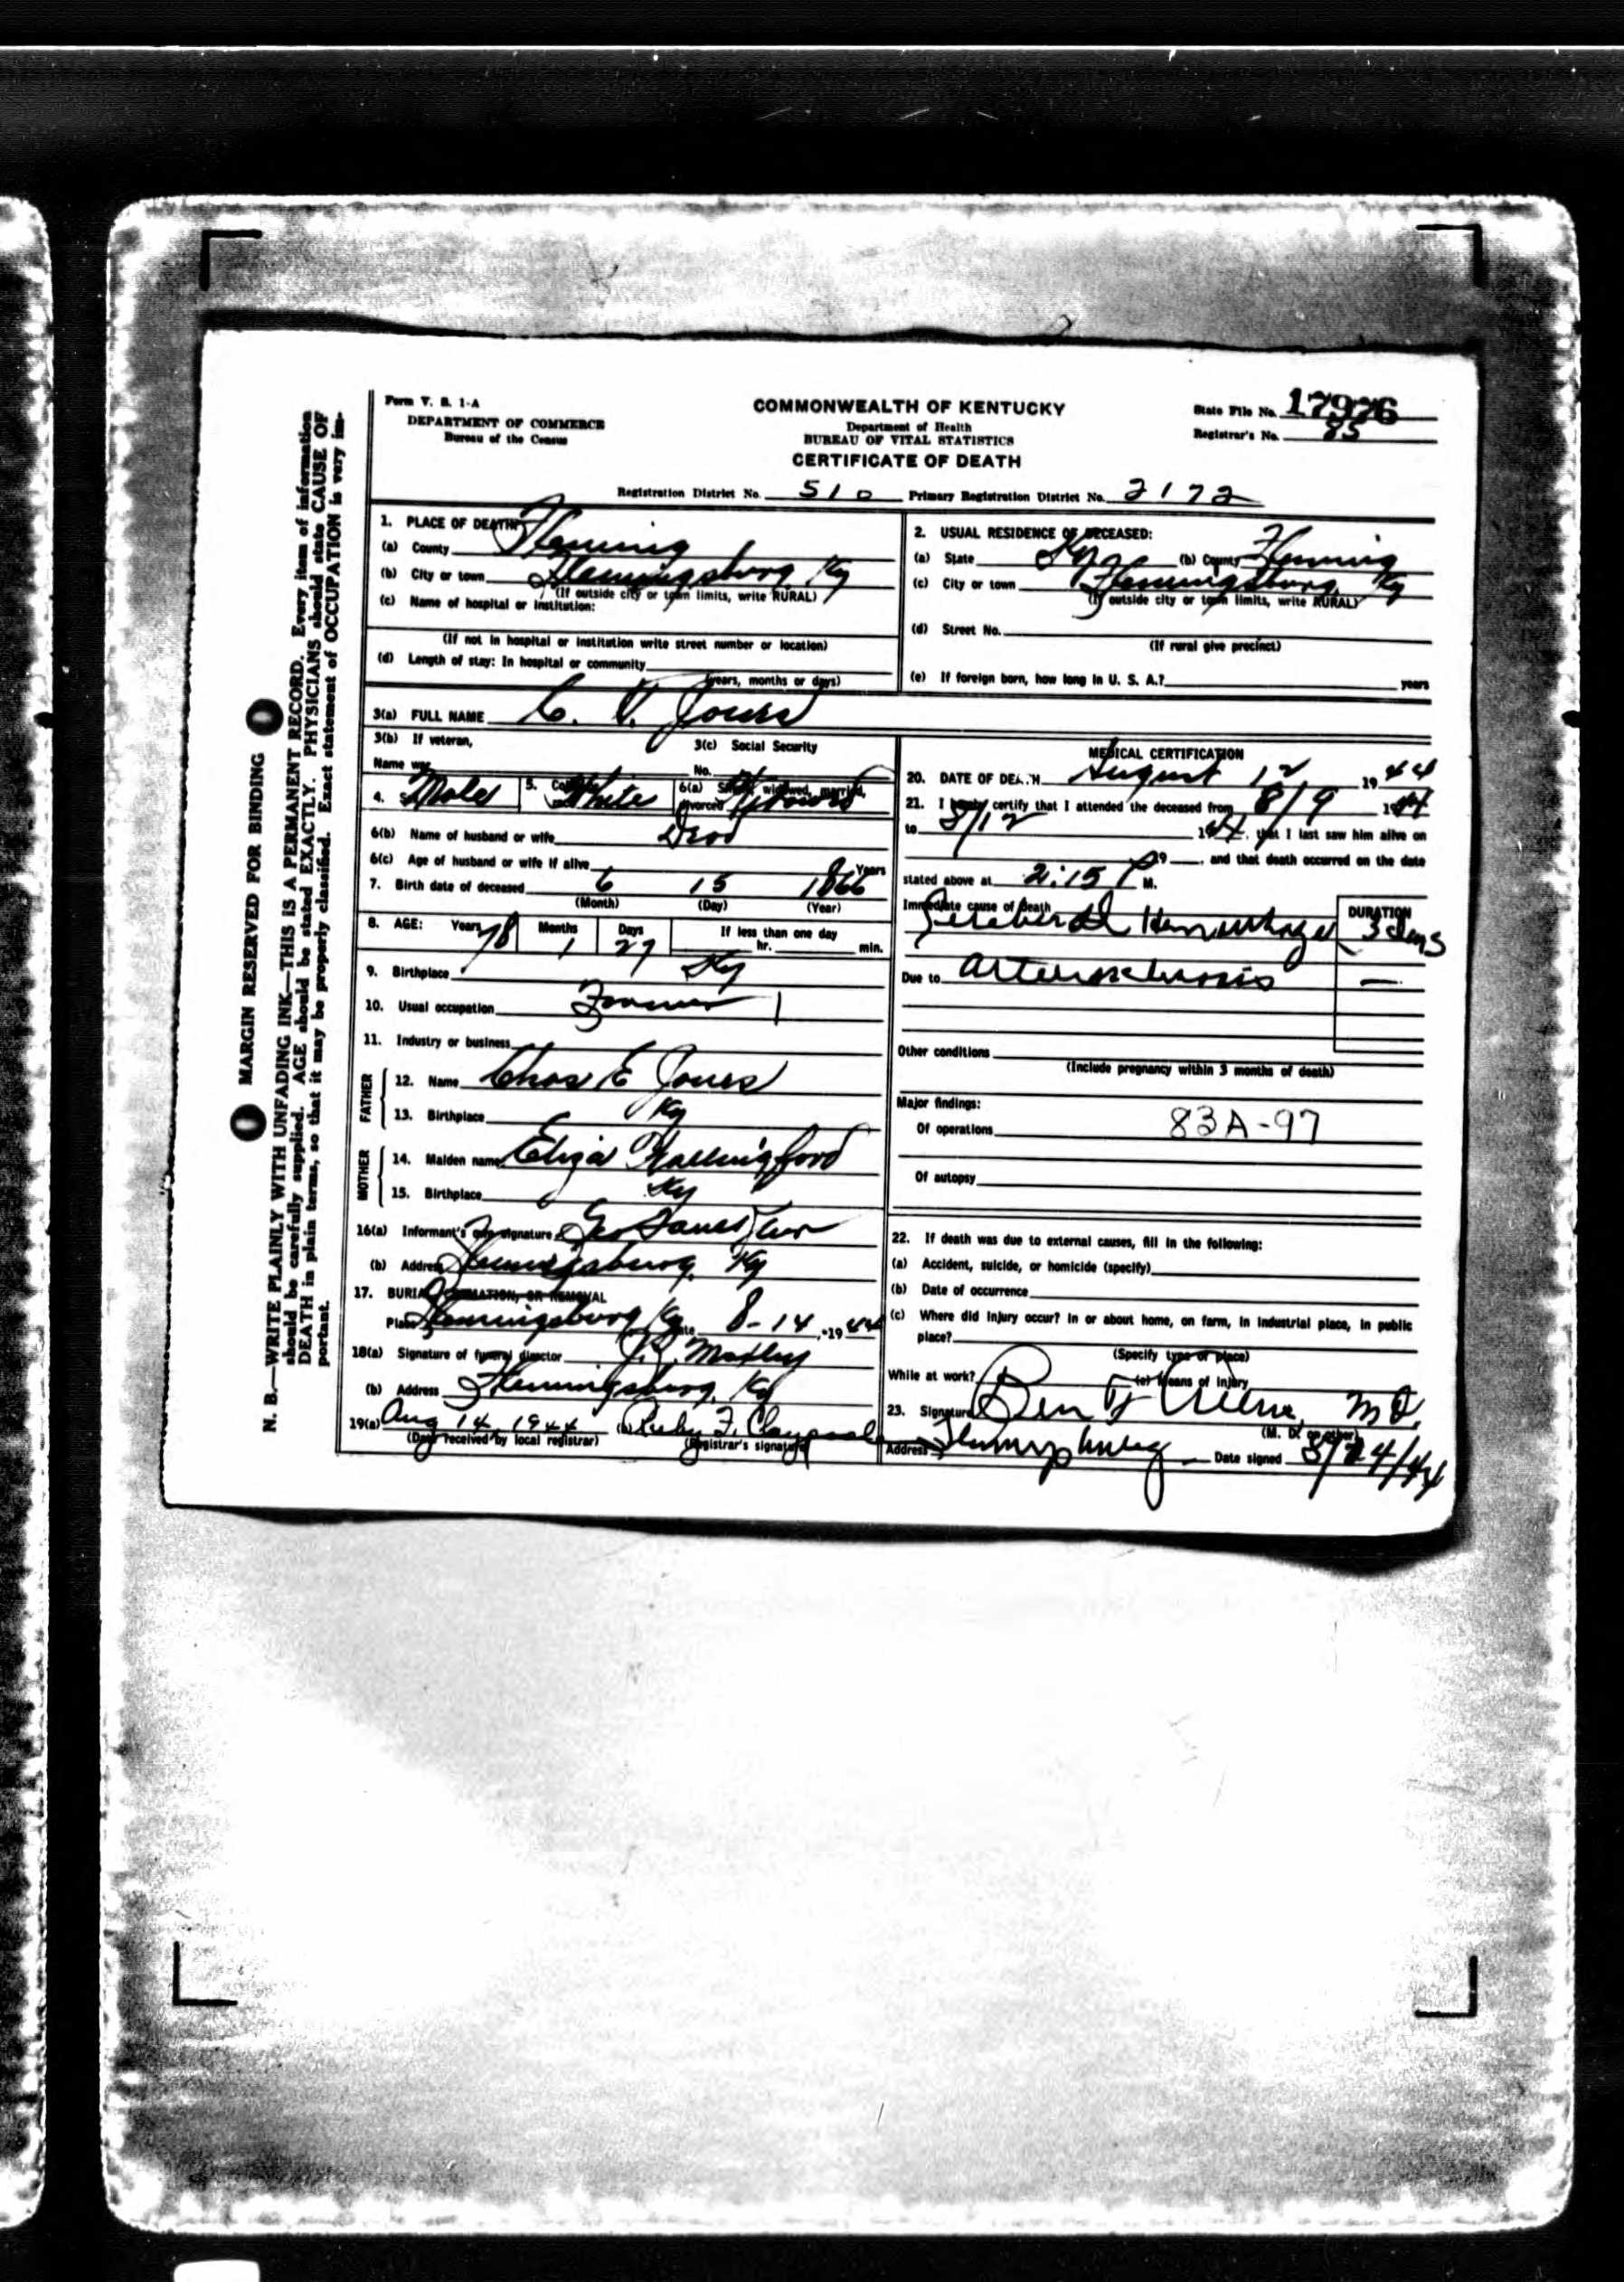 Form V. S. 1-A
DEPARTMENT OF COMMERCE
Bureau of the Census
COMMONWEALTH OF KENTUCKY
Department of Health
BUREAU OF VITAL STATISTICS
CERTIFICATE OF DEATH
State File No. 17976
Registrar's No. 85
Registration District No. 510 Primary Registration District No. 2172
1. PLACE OF DEATH
(a) County Fleming
(b) City or town Flemingsburg Ky
(If outside city or town limits, write RURAL)
(c) Name of hospital or institution:
(If not in hospital or institution write street number or location)
(d) Length of stay: In hospital or community
(years, months or days)
2. USUAL RESIDENCE OF DECEASED:
(a) State Ky (b) County Fleming
(c) City or town Flemingsburg, Ky
(If outside city or town limits, write RURAL)
(d) Street No.
(If rural give precinct)
(e) If foreign born, how long in U. S. A.? years
3(a) FULL NAME C. V. Jones
3(b) If veteran,
Name war
3(c) Social Security
No.
4. Male 5. White 6(a) widowed, married, divorced
6(b) Name of husband or wife Dead
6(c) Age of husband or wife if alive Years
7. Birth date of deceased 6 15 1866
(Month) (Day) (Year)
8. AGE: Years 78 Months 1 Days 27 If less than one day
hr. min.
9. Birthplace Ky
10. Usual occupation Farmer
11. Industry or business
FATHER
12. Name Chas E Jones
13. Birthplace Ky
MOTHER
14. Maiden name Eliza Wallingford
15. Birthplace Ky
16(a) Informant's own signature
(b) Address Flemingsburg, Ky
17. BURIAL, CREMATION, OR REMOVAL
Place Flemingsburg Ky Date 8-14, 1944
18(a) Signature of funeral director
(b) Address Flemingsburg, Ky
19(a) Aug 14 1944 (b) Ruby F. Claypoole
(Date received by local registrar) (Registrar's signature)
MEDICAL CERTIFICATION
20. DATE OF DEATH August 12 1944
21. I hereby certify that I attended the deceased from 8/9 1944
to 8/12 1944, that I last saw him alive on
19 , and that death occurred on the date
stated above at 2:15 P M.
Immediate cause of death DURATION
Cerebral Hemorrhage 3 days
Due to arteriosclerosis —
Other conditions
(Include pregnancy within 3 months of death)
Major findings:
Of operations 83A-97
Of autopsy
22. If death was due to external causes, fill in the following:
(a) Accident, suicide, or homicide (specify)
(b) Date of occurrence
(c) Where did injury occur? In or about home, on farm, in industrial place, in public
place?
(Specify type of place)
While at work? (e) Means of injury
23. Signature M.D.
(M. D. or other)
Address Flemingsburg Date signed 8/24/44
MARGIN RESERVED FOR BINDING
N. B.—WRITE PLAINLY WITH UNFADING INK—THIS IS A PERMANENT RECORD. Every item of information
should be carefully supplied. AGE should be stated EXACTLY. PHYSICIANS should state CAUSE OF
DEATH in plain terms, so that it may be properly classified. Exact statement of OCCUPATION is very im-
portant.